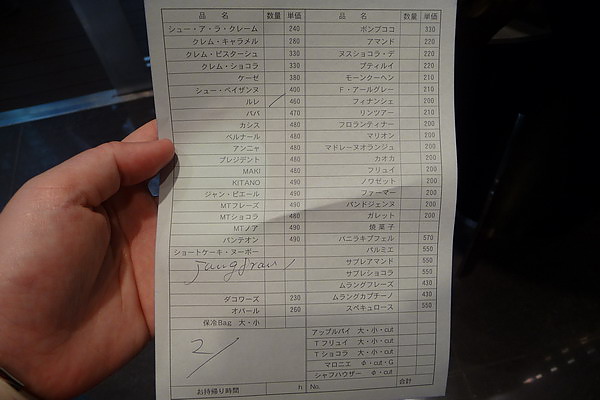 品 名 数量 単価
シュー・ア・ラ・クレーム 240
クレム・キャラメル 280
クレム・ピスターシュ 330
クレム・ショコラ 330
ケーゼ 380
シュー・ペイザンヌ 400
ルレ 460
ババ 470
カシス 480
ベルナール 480
アンニャ 480
プレジデント 480
MAKI 480
KITANO 490
ジャン・ピエール 490
MTフレーズ 490
MTショコラ 480
MTノア 490
パンテオン 490
ショートケーキ・ヌーボー
Jungfrau
ダコワーズ 230
オパール 260
保冷Bag 大・小
2
お持帰り時間 h
品 名 数量 単価
ボンブココ 330
アマンド 220
ヌスショコラ・デ 220
プティルイ 220
モーンクーヘン 210
F・アールグレー 210
フィナンシェ 200
リンツアー 210
フロランティナー 200
マリオン 200
マドレーヌオランジュ 200
カオカ 200
フリュイ 200
ノワゼット 200
ファーマー 200
パンドジェンヌ 200
ガレット 200
焼菓子
バニラキプフェル 570
パルミエ 550
サブレアマンド 550
サブレショコラ 550
ムラングフレーズ 430
ムラングカプチーノ 430
スペキュロース 550
アップルパイ 大・小・cut
Tフリュイ 大・小・cut
Tショコラ 大・小・cut
マロニエ Φ・cut・G
シャフハウザー Φ・cut
No. 合計